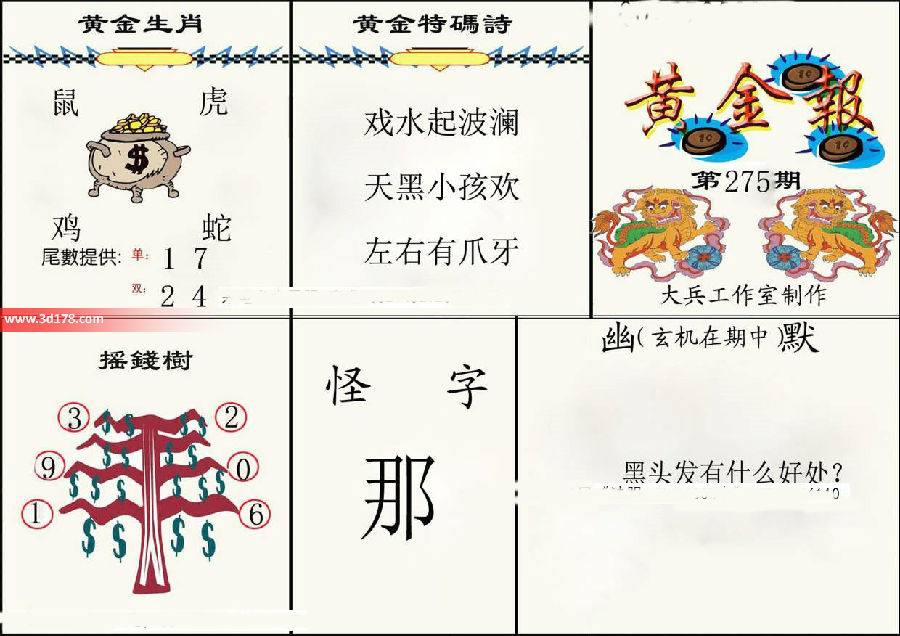 黄金生肖
鼠 虎
$
鸡 蛇
尾數提供: 单: 1 7
双: 2 4
黄金特碼詩
戏水起波澜
天黑小孩欢
左右有爪牙
黄金報
第275期
大兵工作室制作
www.3d178.com
摇錢樹
3 2
9 0
1 6
怪 字
那
幽(玄机在期中)默
黑头发有什么好处?